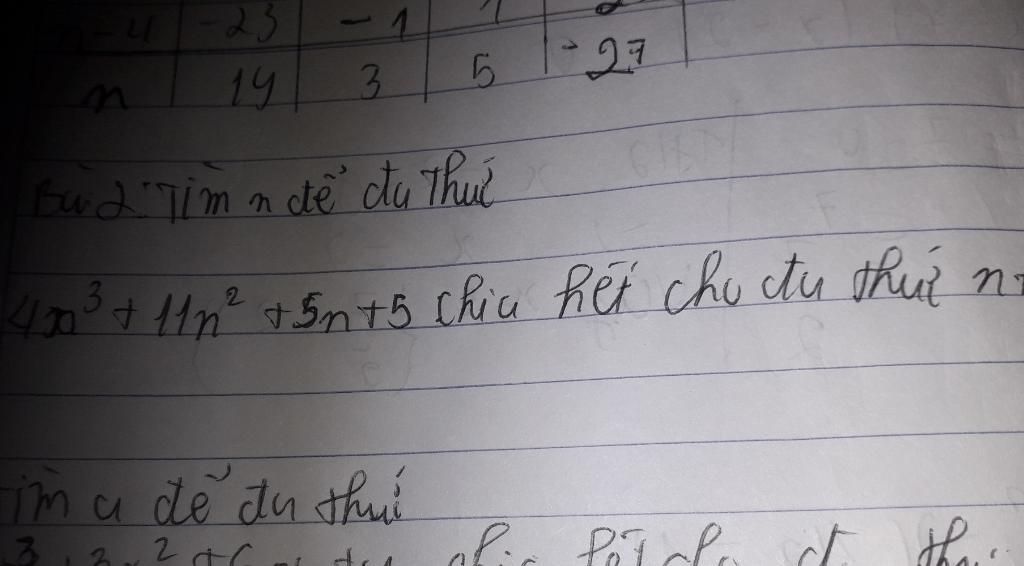 n-4 -23 -1 1
n 19 3 5 27
Bài 2: Tìm n để đa thức
4n³ + 11n² + 5n + 5 chia hết cho đa thức n+
Tìm a để đa thức